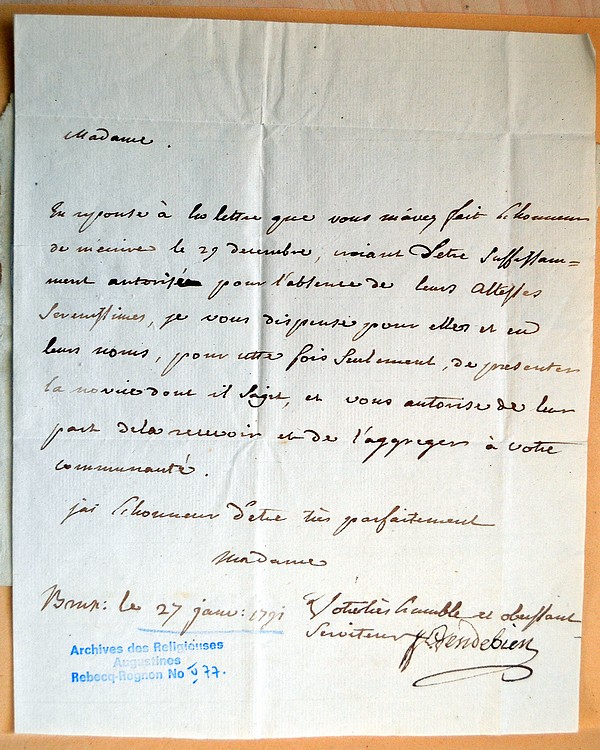 Madame.
En reponse à la lettre que vous m'avez fait l'honneur
de m'ecrire le 29 decembre, croiant d'etre suffissam=
ment autorisée pour l'absence de leurs Altesses
Serenissimes, je vous dispense pour elles et en
leurs noms, pour cette fois seulement, de presenter
la novice dont il s'agit, et vous autorise de leur
part de la recevoir et de l'aggreger à votre
communauté.
j'ai l'honneur d'etre très parfaitement
Madame
Brux: le 27 janv: 1791
Votre très humble et obeissant
Serviteur Hendebien
Archives des Religieuses
Augustines
Rebecq-Rognon No 77.